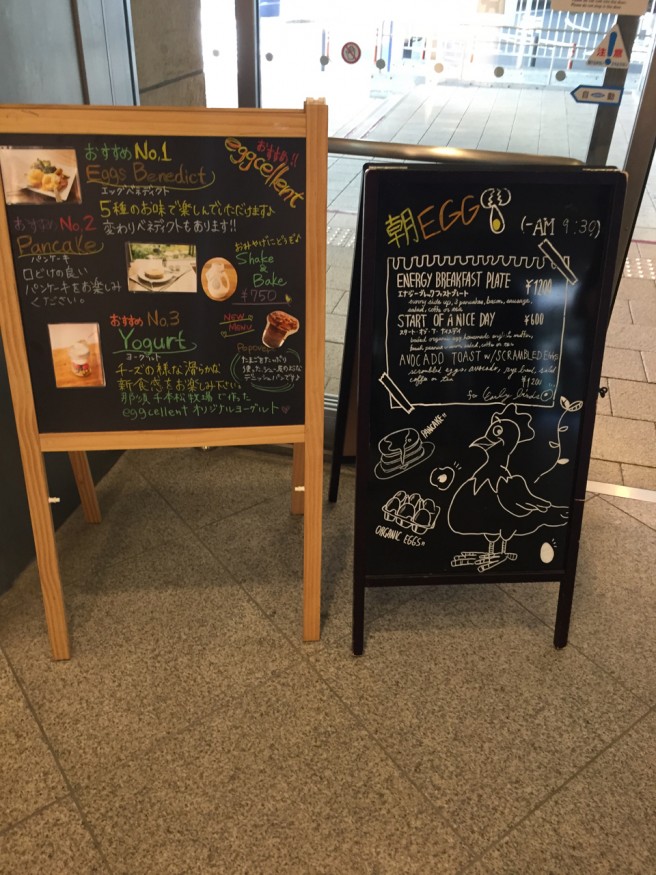 おすすめ No.1
Eggs Benedict
エッグベネディクト
おすすめ!!
eggcellent
5種のお味で楽しんでいただけます♪
変わりベネディクトもあります!!
おすすめ No.2
Pancake
パンケーキ
口どけの良い
パンケーキをお楽しみ
ください。
おみやげにどうぞ♪
Shake
&
Bake
¥750
おすすめ No.3
Yogurt
ヨーグルト
チーズの様な滑らかな
新食感をお楽しみ下さい。
那須千本松牧場で作った
eggcellentオリジナルヨーグルト
NEW
MENU
たまごをたっぷり
朝EGG
(-AM 9:30)
ENERGY BREAKFAST PLATE ¥1200
エナジーブレックファストプレート
sunny side up, 2 pancakes, bacon, sausage,
salad, coffee or tea
START OF A NICE DAY ¥600
スタート オブ ア ナイスデイ
coffee or tea
AVOCADO TOAST w/SCRAMBLED EGGS
scrambled eggs, avocado, rye bread, salad
coffee or tea
for Early birds
PANCAKE
ORGANIC EGGS
注意
自動